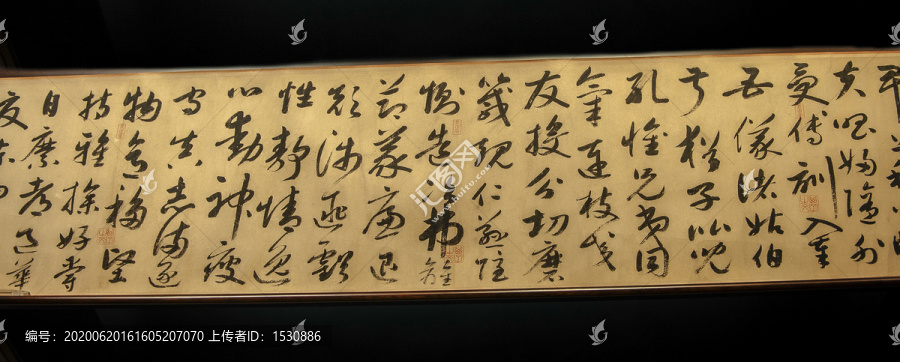 夫唱婦隨外
受傅訓入奉
母儀諸姑伯
叔猶子比兒
孔懷兄弟同
氣連枝交
友投分切磨
箴規仁慈隱
惻造次弗離
節義廉退
顛沛匪虧
性靜情逸
心動神疲
守真志滿逐
物意移堅
持雅操好爵
自縻都邑華
夏東西
编号：20200620161605207070 上传者ID：1530886